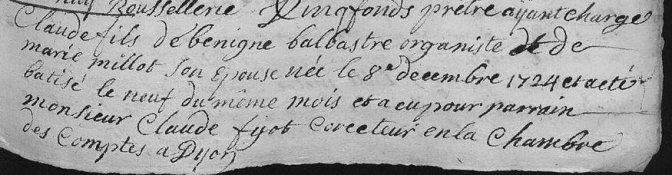 Rousselerie Dingfonds pretre ayant charge
Claude fils de benigne balbastre organiste de de
marie millot Son Epouse née le 8e decembre 1724 et a eté
batisé le neuf du même mois et a eu pour parrain
monsieur Claude fyot Corecteur en la Chambre
des Comptes a Dyon